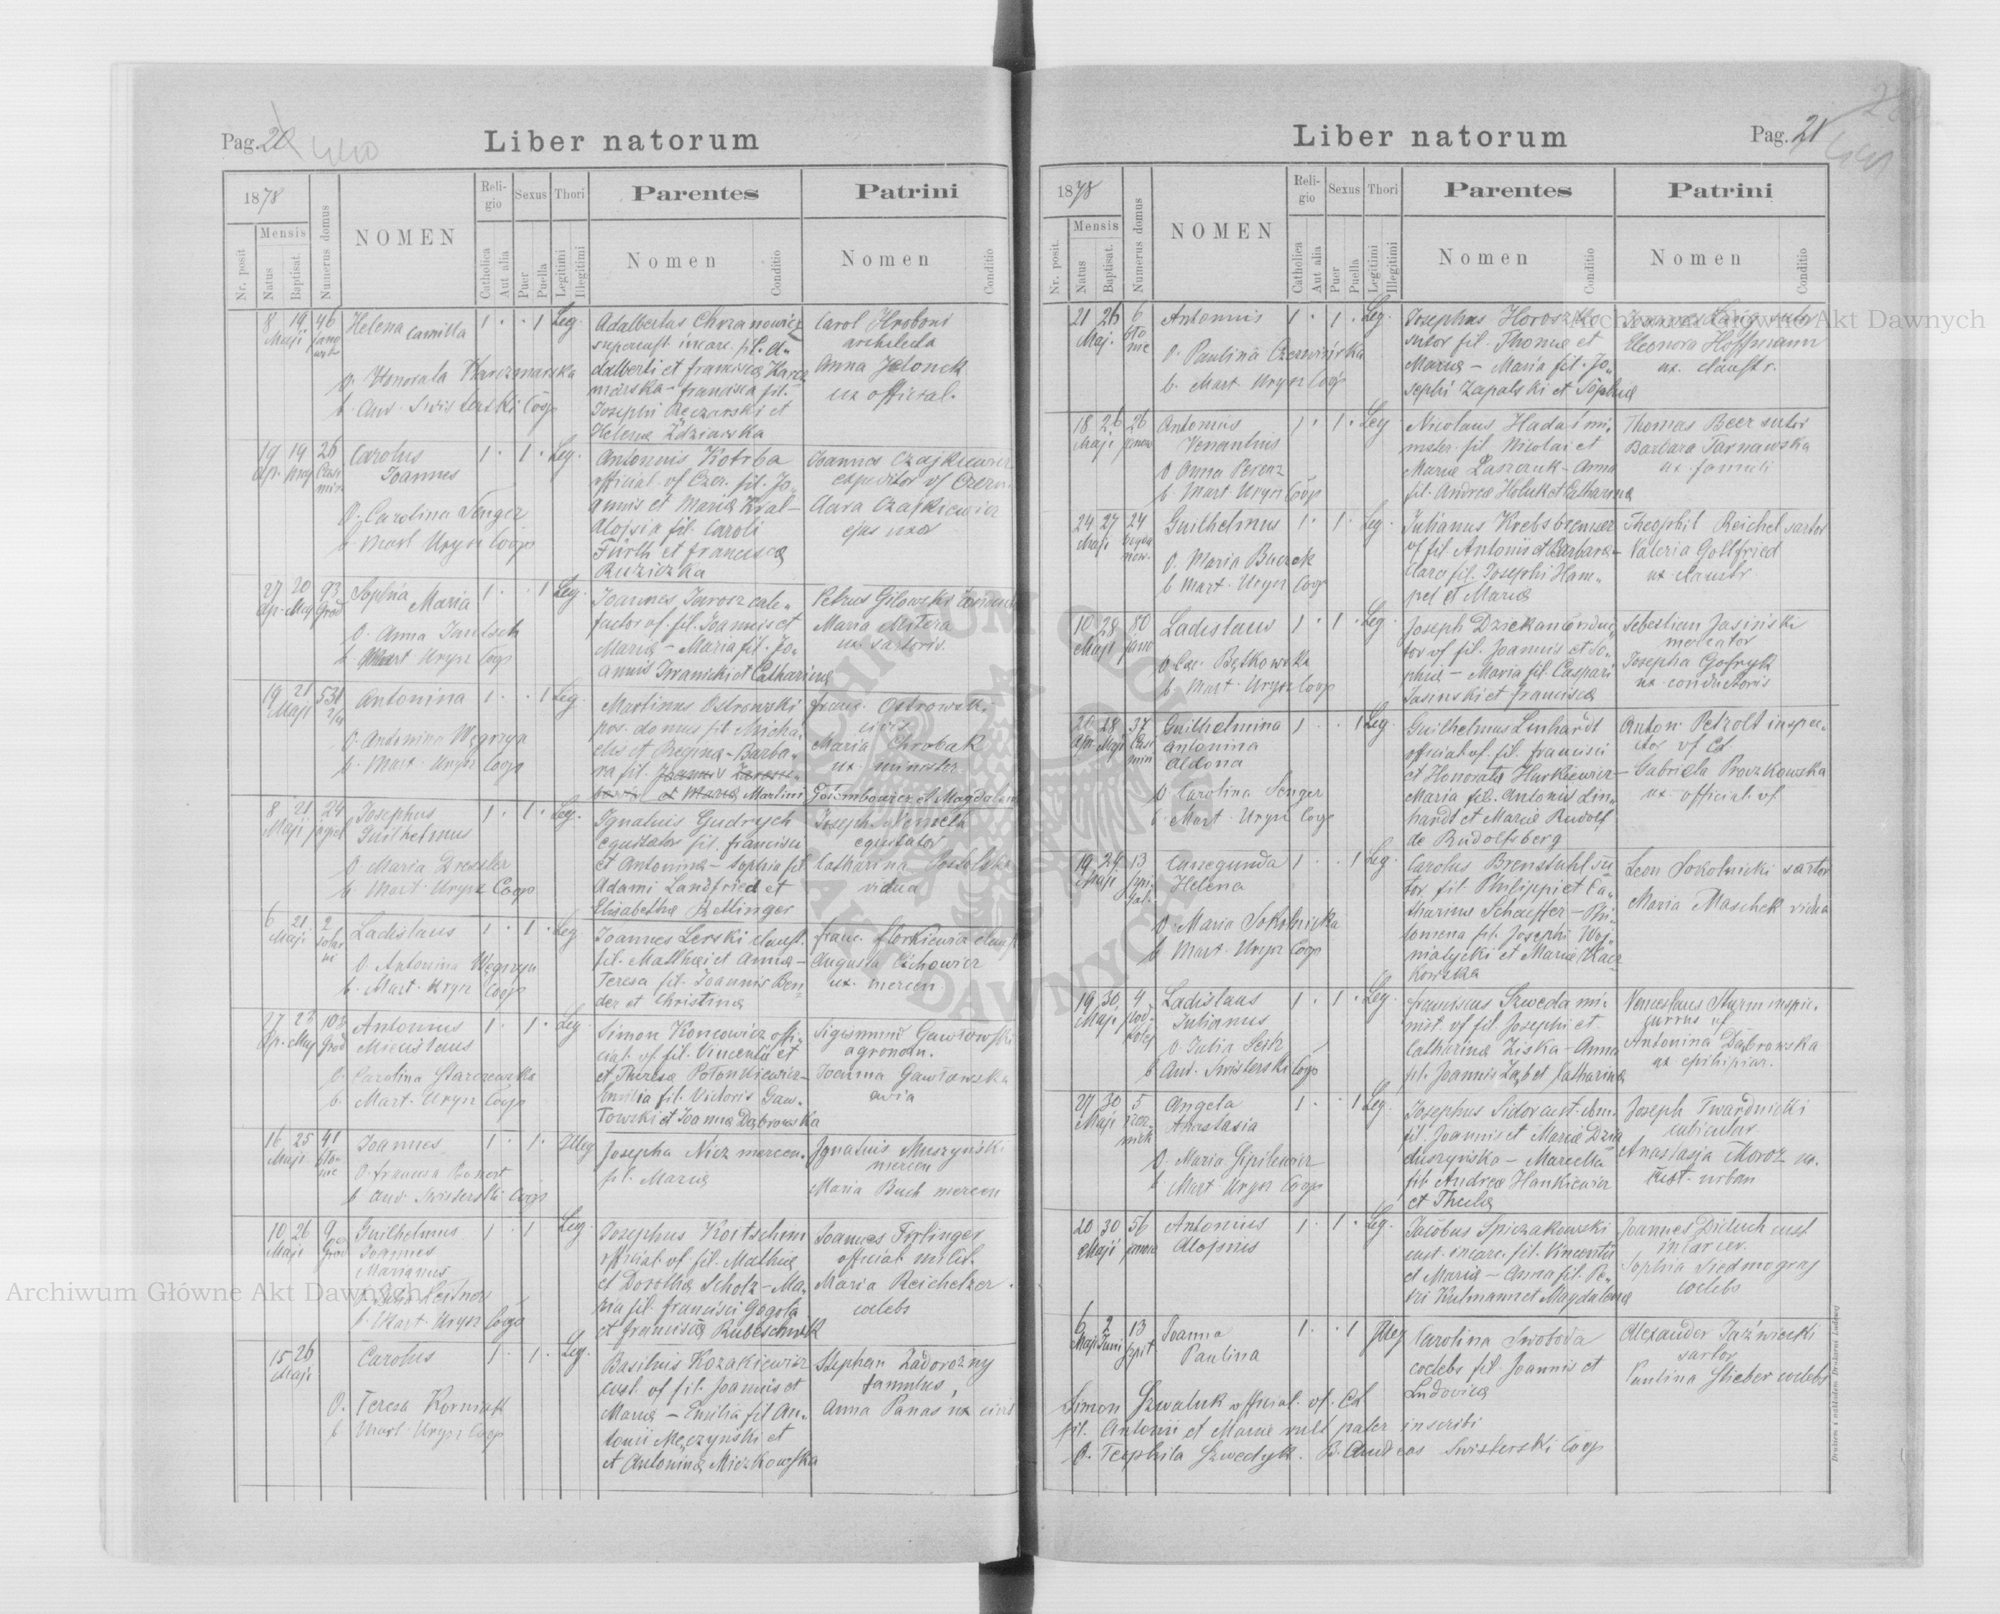 Pag. 20
Liber natorum
1878
Mensis
Nr. posit
Natus
Baptisat.
Numerus domus
NOMEN
Religio
Catholica
Aut alia
Sexus
Puer
Puella
Thori
Legitimi
Illegitimi
Parentes
Nomen
Conditio
Patrini
Nomen
Conditio
8 Maji 19 46
Helena Camilla
O. Honorata Karczmarska
b. And. Swisterski Coop
1 · · 1 Leg.
Adalbertus Chrzanowicz
adalberti et francisca
marska - francisca fil.
Josephi et
Helena
Carol Hroboni
architecta
Anna
ux official.
19 Apr. 19 Maj 26
Carolus
Joannes
O. Carolina Senger
b. Mart Uryn Coop
1 · 1 · Leg.
Antonius Kotrba
official. vf Czer. fil. Jo-
annis et Maria Kral -
Aloisia fil. Caroli
Fürth et francisca
Ružiczka
Joannes Czajkiewicz
expeditor vf Czern.
Clara Czajkiewicz
ejus uxor
27 Apr. 20 Maj 93 Grod
Sophia Maria
O. Anna Jantsch
b. Mart Uryn Coop
1 · · 1 Leg.
Joannes Jarosz cale-
factor vf. fil. Joannis et
Maria - Maria fil. Jo-
annis Iwanicki et Catharina
Petrus Gilowski
Maria Mitera
ux sartoris.
19 Maji 21 531
Antonina
O. Antonina Węgrzyn
b. Mart. Uryn Coop
1 · · 1 Leg.
Martinus Ostrowski
pos. domus fil. Micha-
elis et Regina - Barba-
ra fil.
et Maria Martini Gołembowicz et Magdalena
franc. Ostrowski
Maria Chrobak
ux. minister
8 Maji 21 24
Josephus
Guilhelmus
O. Maria Drexler
b. Mart. Uryn Coop
1 · 1 · Leg.
Ignatius Gudrych
fil. francisci
et Antonina - Sophia fil
Adami Landfried et
Elisabetha Rettinger
Joseph. Nemeth
Catharina
vidua
6 Maji 21 2
Ladislaus
O. Antonina Węgrzyn
b. Mart. Uryn Coop
1 · 1 · Leg.
Joannes Lerski claust.
fil. Matthaei et Anna -
Teresa fil. Joannis Ben-
der et Christina
franc. Florkiewicz
Augusta Cichowicz
ux. mercen
27 Apr. 108 Grod
Antonius
Miecislaus
O. Carolina Starczewska
b. Mart. Uryn Coop
1 · 1 · Leg.
Simon Koncowicz offi-
cial. vf fil. Vincentii et
et Theresa Połonkiewicz -
Emilia fil. Victoris Gaw-
łowski et Joanna Dąbrowska
Sigismund Gawłowski
agronom.
Joanna Gawłowska
avia
16 Maji 25 41
Joannes
O. francisca
b. And. Swisterski Coop
1 · 1 · Illeg
Josepha Nicz mercen.
fil. Maria
Ignatius Muszyński
mercen
Maria Buch mercen
10 Maji 26 9 Grod
Guilhelmus
Joannes
Marianus
b. Mart. Uryn Coop
1 · 1 Leg.
Josephus Koitschim
official vf fil. Mathia
et Dorothea Scholz - Ma-
ria fil. francisci Gogola
et francisca Rubeschnik
Joannes Trylinger
official milit.
Maria Reichelzer
coelebs
15 26 Maji
Carolus
O. Teresa Korniak
b. Mart. Uryn Coop
1 · 1 · Leg.
Basilius Kozakiewicz
cust. vf fil. Joannis et
Maria - Emilia fil An-
tonii Męczynski et
et Antonina Miezkowska
Stephan Zadorożny
famulus,
Anna Panas ux
Liber natorum
Pag. 21
1878
Mensis
Nr. posit.
Natus
Baptisat.
Numerus domus
NOMEN
Religio
Catholica
Aut alia
Sexus
Puer
Puella
Thori
Legitimi
Illegitimi
Parentes
Nomen
Conditio
Patrini
Nomen
Conditio
21 Maj. 26 6
Antonius
O. Paulina Czerwińska
b. Mart. Uryn Coop
1 · 1 · Leg.
Josephus Horoszko
sutor fil. Thoma et
Maria - Maria fil. Jo-
sephi Zapalski et Sophia
Joannes Lang sutor
Eleonora Hoffmann
ux. claustr.
18 Maji 26 26
Antonius
Venantius
O Anna Perenz
b. Mart Uryn Coop
1 · 1 · Leg
Nicolaus Hadai mi-
nister. fil Nicolai et
Maria Laszczuk - Anna
fil. Andrea Holuk et Catharina
Thomas Beer sutor
Barbara Tarnawska
ux. famuli
24 Maji 27 24
Guilhelmus
O. Maria Buczek
b Mart. Uryn Coop
1 · 1 · Leg.
Julianus Krebsbrenner
vf fil. Antonii et Barbara -
Clara fil. Josephi Ham-
pel et Maria
Theophil Reichel sartor
Valeria Gottfried
ux claustr.
10 Maji 28 80
Ladislaus
O Cac. Bętkowska
b. Mart. Uryn Coop
1 · 1 · Leg.
Joseph Dziekan conduc-
tor vf fil. Joannis et So-
phia - Maria fil Caspari
Jasinski et francisca
Sebestian Jasiński
mercator
Josepha Gofryk
ux conductoris
20 Apr. 28 Maji 37
Guilhelmina
Antonina
Aldona
O Carolina Senger
b. Mart. Uryn Coop
1 · · 1 Leg.
Guilhelmus Linhardt
official vf. fil. francisci
et Honorata Hurkiewicz -
Maria fil. Antonii Lin-
hardt et Maria Rudolf
de Rudolfsberg
Anton Petzolt inspec-
tor vf Cd
Gabriela Proczkowska
ux official. vf
19 Maji 29 13
Cunegunda
Helena
O Maria Sokolnicka
b. Mart. Uryn Coop
1 · · 1 Leg.
Carolus Brenstuhl su-
tor fil Philippi et Ca-
tharina Schaeffer - Phi-
lomena fil. Josephi Woj-
niatycki et Maria Kacz-
kowska
Leon Sokolnicki sartor
Maria Maschek vidua
19 Maji 30 4
Ladislaus
Julianus
O. Julia Serk
b And. Swisterski Coop
1 · 1 · Leg.
franciscus Szweda mi-
nist. vf fil Josephi et
Catharina Ziska - Anna
fil. Joannis Ząb et Catharina
Venceslaus Sturm
Antonina Dąbrowska
27 Maji 30 5
Angela
Anastasia
O. Maria Gipilewicz
b. Mart Uryn Coop
1 · · 1 Leg.
Josephus Sidor
fil. Joannis et Maria Dzia
duszyńska - Marcella
fil. Andrea Hankiewicz
et Thecla
Joseph Twardnicki
cubicular.
Anastasja Moroz ux.
cust. urban
20 Maji 30 56
Antonius
Aloisius
1 · 1 · Leg.
Jacobus Spiczakowski
cust. incarc. fil. Vincentii
et Maria - Anna fil. Pe-
tri Kulmann et Magdalena
Joannes Dietuch cust
incarcer.
Sophia Siedmograj
coelebs
6 Maji 2 Juni 13
Joanna
Paulina
1 · · 1 Illeg
Carolina Swoboda
coelebs fil. Joannis et
Ludovica
Alexander Jaźwicki
sartor
Paulina Stieber coelebs
Simon Szwaluk official. vf Cd
fil. Antonii et Maria vult pater inscribi
O. Teophila Szwedyk. B. Andreas Swisterski Coop
Archiwum Główne Akt Dawnych
Archiwum Główne Akt Dawnych
ARCHIWUM GŁÓWNE AKT DAWNYCH